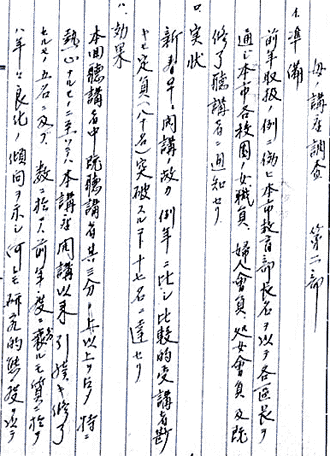 母講座調査　第二部
イ、準備
前年取扱ノ例ニ倣ヒ本市教育部長名ヲ以テ各区長ヲ
通ジ本市各校園ノ女職員、婦人會員、処女會員及既
修了聴講者ニ通知セリ
ロ、実状
新春早々開講ノ故カ例年ニ比シ比較的受講者尠
キモ定員(八十名)突破スルコト十七名ニ達セリ
ハ、効果
本回聴講者中既聴講者其ノ三分ノ一以上ヲ占メ特ニ
熱心ナルモノニ至リテハ本講座開講以来引續キ修了
セルモノ五名ニ及ブ、数ニ於テハ前年度ニ劣ルモ質ニ於テ
ハ年々良化ノ傾向ヲ示シ何レモ研究的態度ヲ以テ